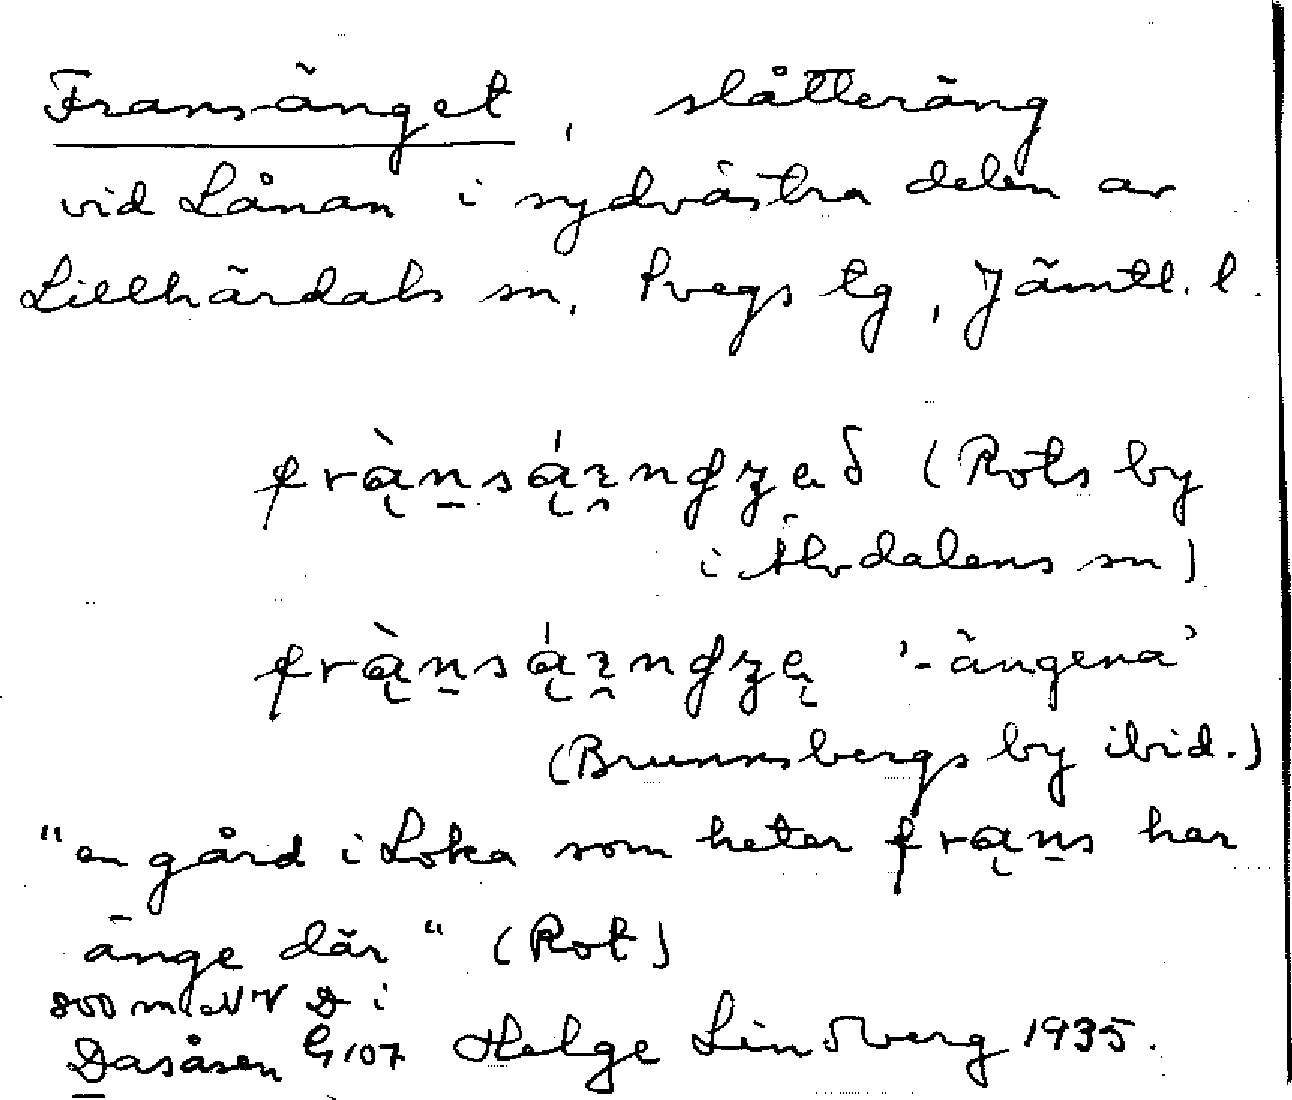 Fransänget, slåtteräng
vid Lånan i sydvästra delen av
Lillhärdals sn, Svegs tg, Jämtl. l.
(Rots by
i Älvdalens sn)
'-ängena'
(Brunnsbergs by ibid.)
"en gård i Loka som heter frąn̠s har
änge där" (Rot)
800 m NV D i
Dasåsen G 107 Helge Lindberg 1935.